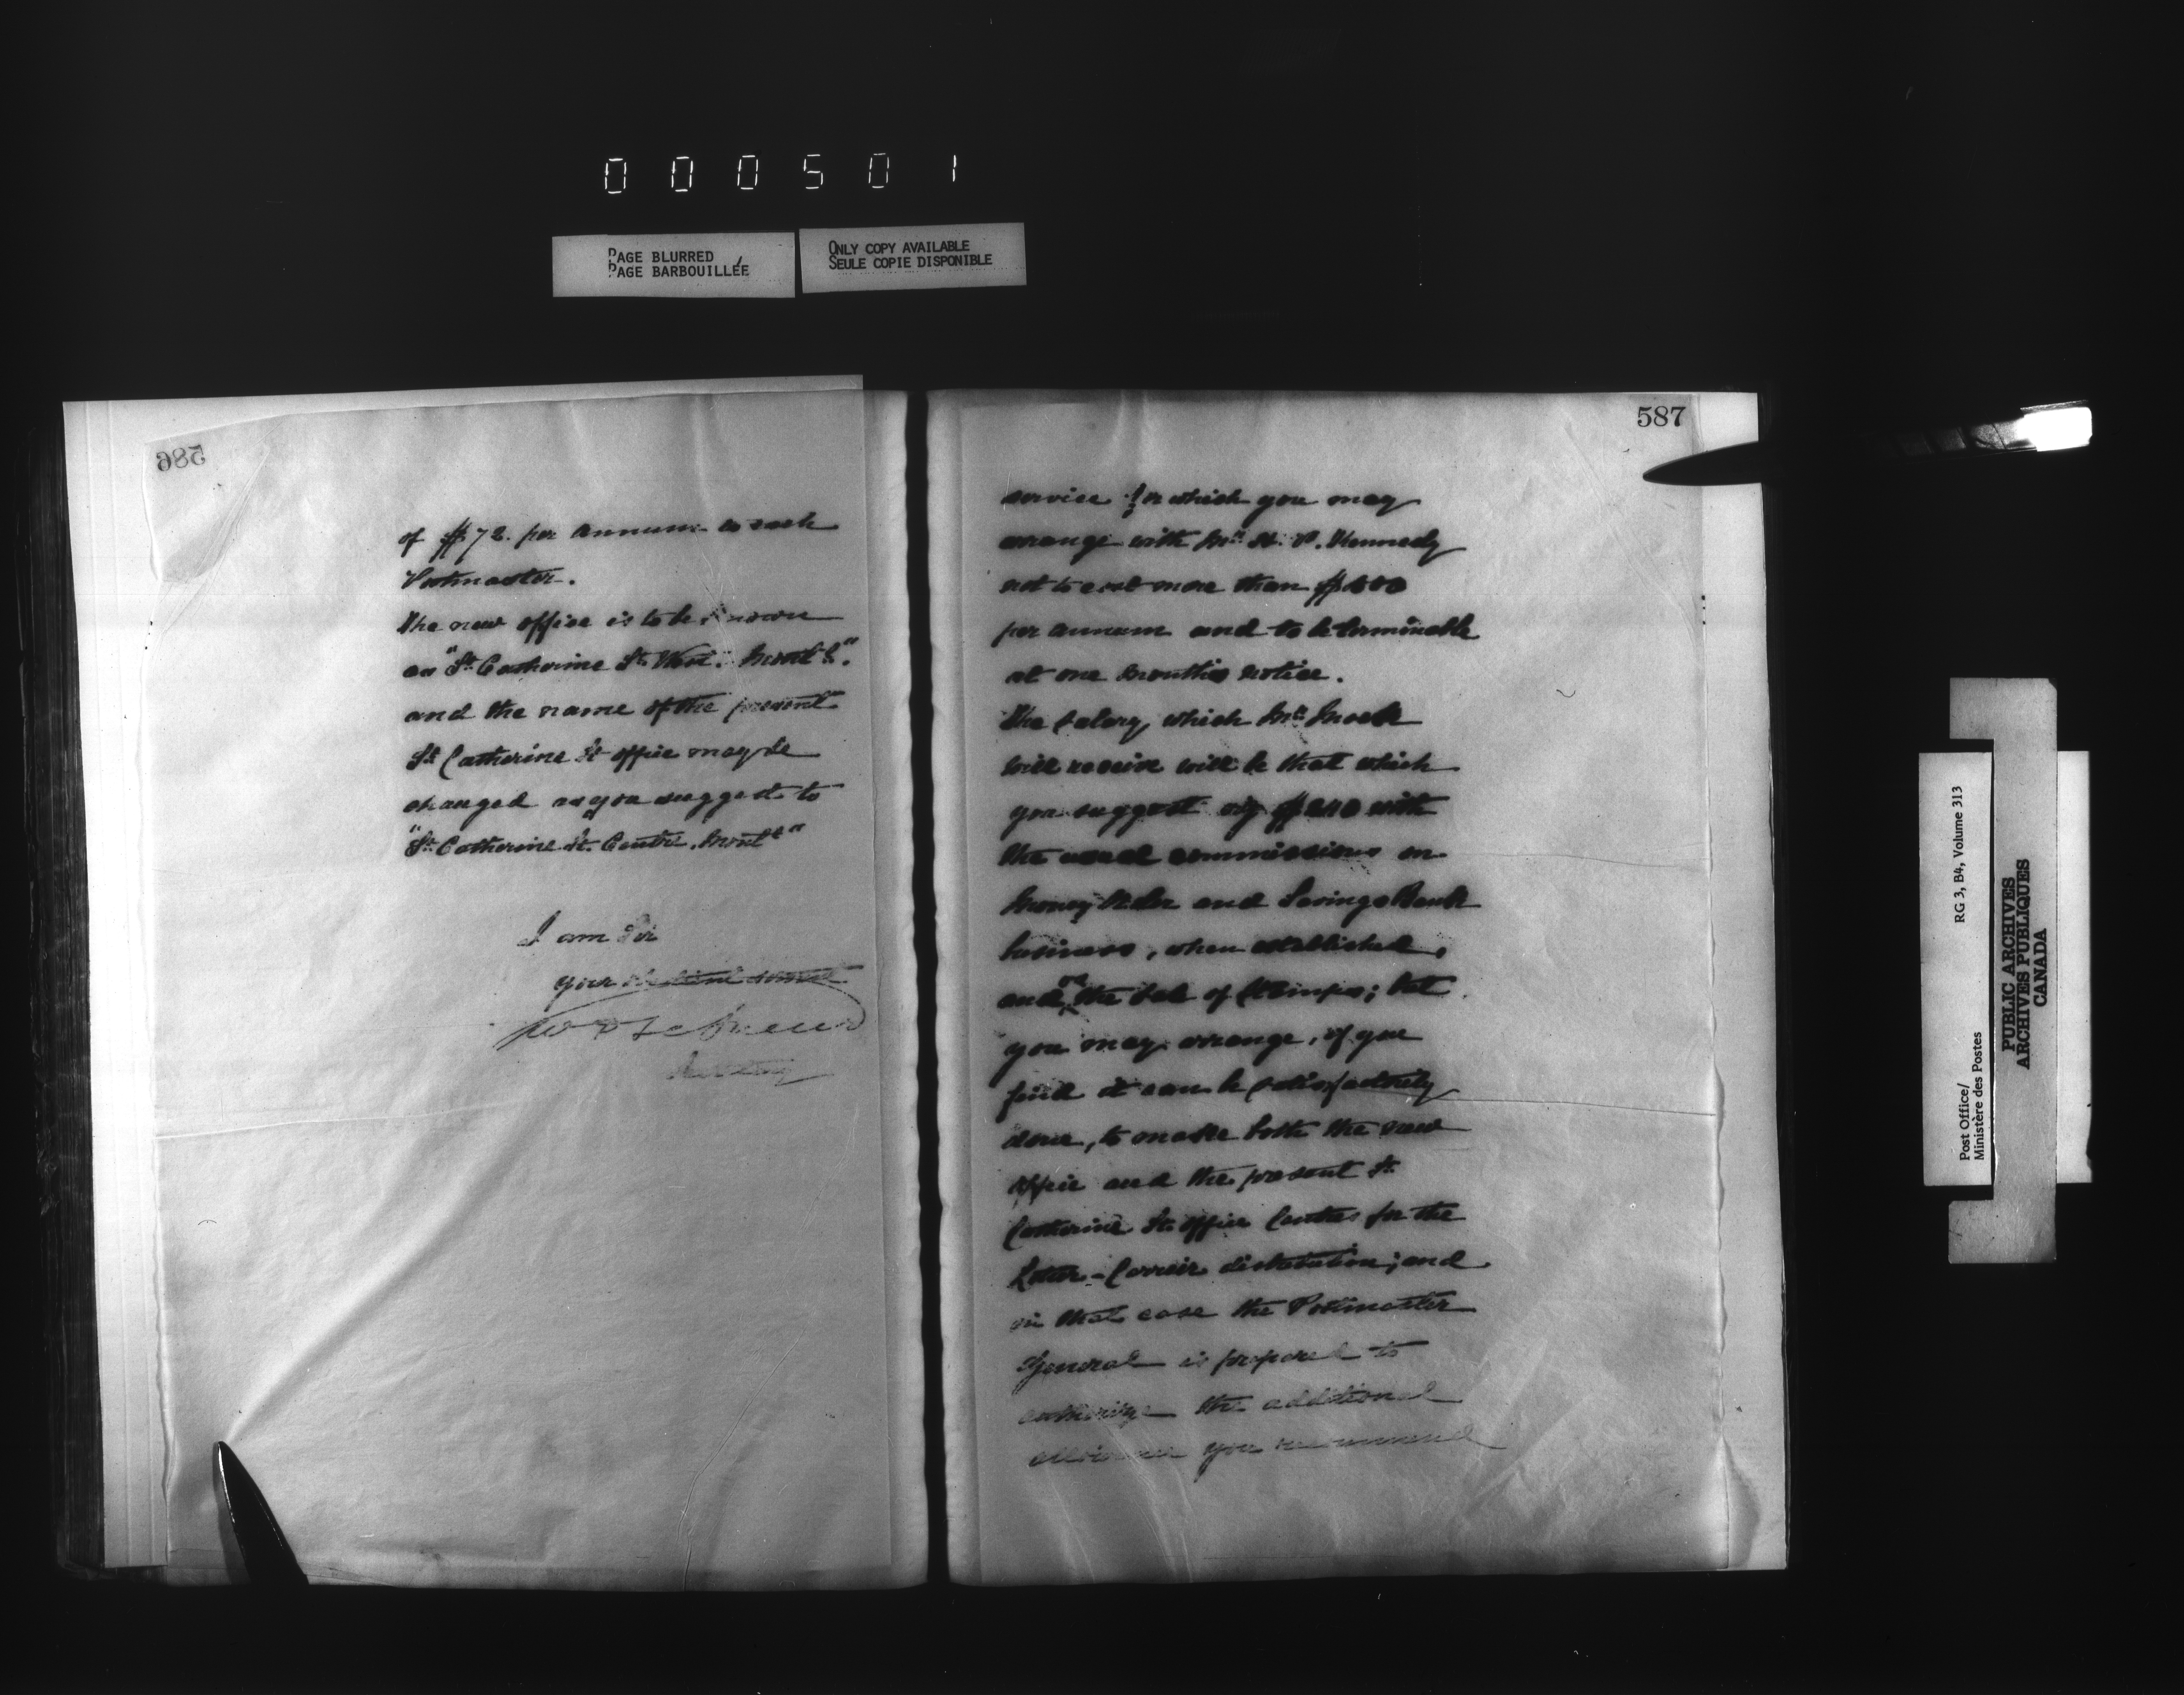 000501
PAGE BLURRED
PAGE BARBOUILLÉE
ONLY COPY AVAILABLE
SEULE COPIE DISPONIBLE
586
of $72. per annum to each
Postmaster.
The new office is to be known
as "St Catherine St. West. Montl."
and the name of the present
St Catherine St office may be
changed as you suggest to
"St Catherine St. Centre. Montl"
I am Sir
your obedient servant
Secretary
587
service for which you may
arrange with Mr. P. Kennedy
not to cost more than
per annum and to be terminable
at one months notice.
The salary which Mr
will receive will be that which
you suggest viz $240 with
the usual commissions on
Money Order and Savings Bank
business, when established,
and on the sale of stamps; but
you may arrange, if you
find it can be satisfactorily
done, to make both the new
office and the present St
Catherine St. office Centres for the
Letter-Carrier distribution; and
in that case the Postmaster
General is prepared to
authorize the additional
allowance you recommend
Post Office/
Ministère des Postes
RG 3, B4, Volume 313
PUBLIC ARCHIVES
ARCHIVES PUBLIQUES
CANADA